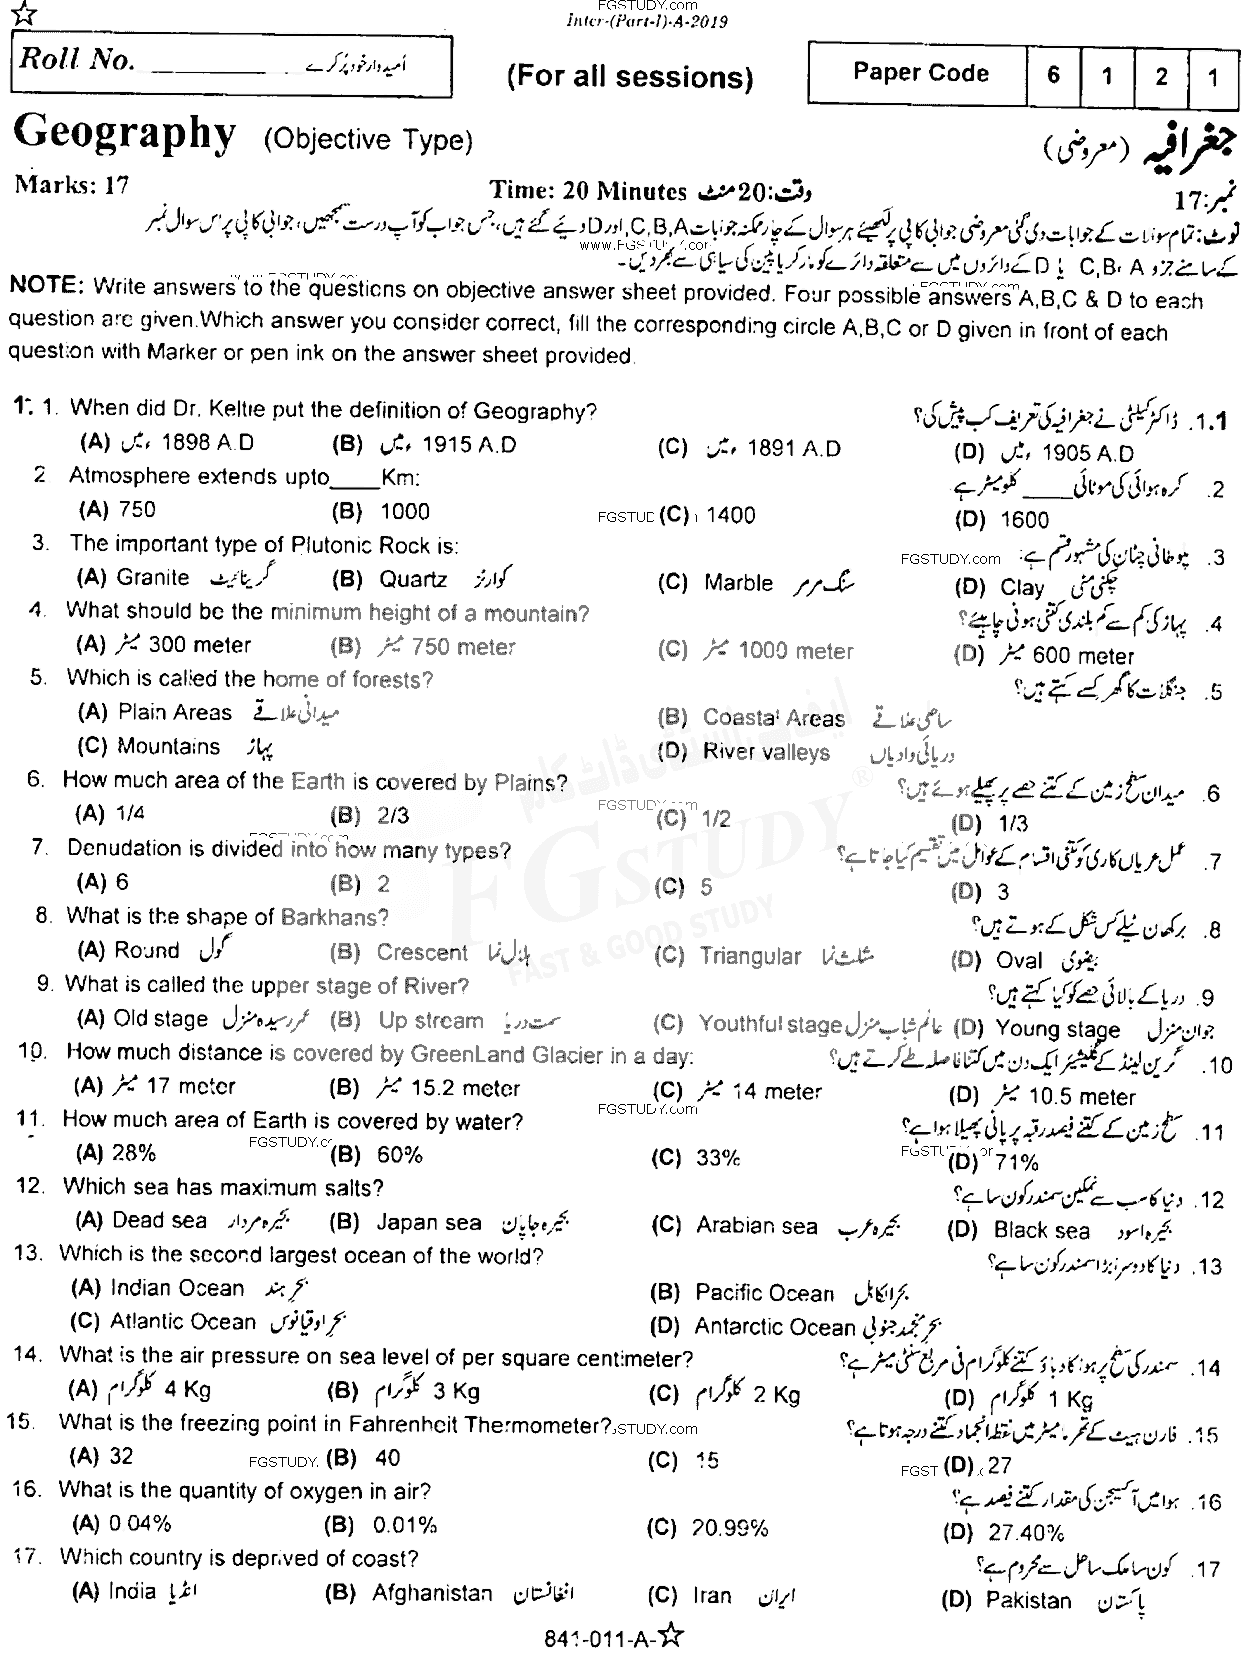 FGSTUDY.com
Inter-(Part-I)-A-2019
Roll No. ____________ اُمیدوار خود پُر کرے
(For all sessions)
Paper Code 6 1 2 1
Geography (Objective Type) جغرافیہ (معروضی)
Marks: 17 Time: 20 Minutes وقت:20 منٹ نمبر:17
نوٹ: تمام سوالات کے جوابات دی گئی معروضی جوابی کاپی پر لکھیئے ہر سوال کے چار ممکنہ جوابات C,B,A اور D دیئے گئے ہیں، جس جواب کو آپ درست سمجھیں، جوابی کاپی پر اُس سوال نمبر
کے سامنے جزو C,B,A یا D کے دائروں میں سے متعلقہ دائرے کو مارکر یا پین کی سیاہی سے بھر دیں۔
NOTE: Write answers to the questions on objective answer sheet provided. Four possible answers A,B,C & D to each
question are given.Which answer you consider correct, fill the corresponding circle A,B,C or D given in front of each
question with Marker or pen ink on the answer sheet provided.
1. 1. When did Dr. Keltie put the definition of Geography? 1.1. ڈاکٹر کیلٹی نے جغرافیہ کی تعریف کب پیش کی؟
(A) ء میں 1898 A.D (B) ء میں 1915 A.D (C) ء میں 1891 A.D (D) ء میں 1905 A.D
2 Atmosphere extends upto____Km: 2. کرہ ہوائی کی موٹائی ____ کلومیٹر ہے
(A) 750 (B) 1000 (C) 1400 (D) 1600
3. The important type of Plutonic Rock is: 3. پلوٹانی چٹان کی مشہور قسم ہے:
(A) Granite گرینائیٹ (B) Quartz کوارٹز (C) Marble سنگ مرمر (D) Clay چکنی مٹی
4. What should be the minimum height of a mountain? 4. پہاڑ کی کم سے کم بلندی کتنی ہونی چاہیئے؟
(A) میٹر 300 meter (B) میٹر 750 meter (C) میٹر 1000 meter (D) میٹر 600 meter
5. Which is called the home of forests? 5. جنگلات کا گھر کسے کہتے ہیں؟
(A) Plain Areas میدانی علاقے (B) Coastal Areas ساحلی علاقے
(C) Mountains پہاڑ (D) River valleys دریائی وادیاں
6. How much area of the Earth is covered by Plains? 6. میدان سطح زمین کے کتنے حصے پر پھیلے ہوئے ہیں؟
(A) 1/4 (B) 2/3 (C) 1/2 (D) 1/3
7. Denudation is divided into how many types? 7. عمل عریاں کاری کو کتنی اقسام کے عوامل میں تقسیم کیا جاتا ہے؟
(A) 6 (B) 2 (C) 5 (D) 3
8. What is the shape of Barkhans? 8. برکھان ٹیلے کس شکل کے ہوتے ہیں؟
(A) Round گول (B) Crescent ہلال نما (C) Triangular مثلث نما (D) Oval بیضوی
9. What is called the upper stage of River? 9. دریا کے بالائی حصے کو کیا کہتے ہیں؟
(A) Old stage عمر رسیدہ منزل (B) Up stream سمت دریا (C) Youthful stage عالم شباب منزل (D) Young stage جوان منزل
10. How much distance is covered by GreenLand Glacier in a day: 10. گرین لینڈ کے گلیشیئر ایک دن میں کتنا فاصلہ طے کرتے ہیں؟
(A) میٹر 17 meter (B) میٹر 15.2 meter (C) میٹر 14 meter (D) میٹر 10.5 meter
11. How much area of Earth is covered by water? 11. سطح زمین کے کتنے فیصد رقبہ پر پانی پھیلا ہوا ہے؟
(A) 28% (B) 60% (C) 33% (D) 71%
12. Which sea has maximum salts? 12. دنیا کا سب سے نمکین سمندر کون سا ہے؟
(A) Dead sea بحیرہ مردار (B) Japan sea بحیرہ جاپان (C) Arabian sea بحیرہ عرب (D) Black sea بحیرہ اسود
13. Which is the second largest ocean of the world? 13. دنیا کا دوسرا بڑا سمندر کون سا ہے؟
(A) Indian Ocean بحر ہند (B) Pacific Ocean بحرالکاہل
(C) Atlantic Ocean بحر اوقیانوس (D) Antarctic Ocean بحر منجمد جنوبی
14. What is the air pressure on sea level of per square centimeter? 14. سمندر کی سطح پر ہوا کا دباؤ کتنے کلوگرام فی مربع سنٹی میٹر ہے؟
(A) کلوگرام 4 Kg (B) کلوگرام 3 Kg (C) کلوگرام 2 Kg (D) کلوگرام 1 Kg
15. What is the freezing point in Fahrenheit Thermometer? 15. فارن ہیٹ کے تھرمامیٹر میں نقطہ انجماد کتنے درجہ ہوتا ہے؟
(A) 32 (B) 40 (C) 15 (D) 27
16. What is the quantity of oxygen in air? 16. ہوا میں آکسیجن کی مقدار کتنے فیصد ہے؟
(A) 0.04% (B) 0.01% (C) 20.99% (D) 27.40%
17. Which country is deprived of coast? 17. کون سا ملک ساحل سے محروم ہے؟
(A) India انڈیا (B) Afghanistan افغانستان (C) Iran ایران (D) Pakistan پاکستان
841-011-A-☆